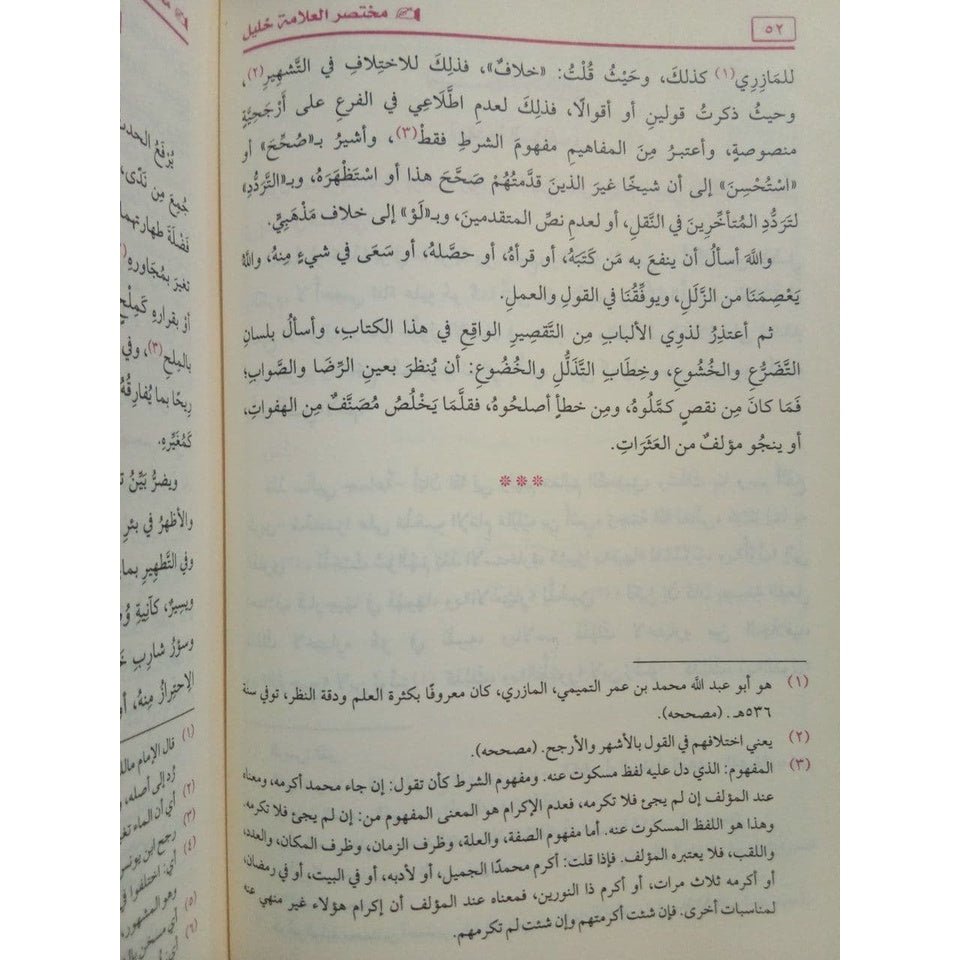 مختصر العلامة خليل
٥٢
للمَازِرِي(١) كذلكَ، وحَيْثُ قُلْتُ: «خلافٌ»، فذلِكَ للاختِلافِ في التَّشهِيرِ(٢)،
وحيثُ ذكرتُ قولينِ أو أقوالًا، فذلِكَ لعدمِ اطَّلَاعِي في الفرعِ على أَرْجَحِيَّةٍ
منصوصةٍ، وأعتبرُ مِنَ المفاهيمِ مفهومَ الشرطِ فقطْ(٣)، وأشيرُ بـ«صُحِّحَ» أو
«اسْتُحْسِنَ» إلى أن شيخًا غيرَ الذينَ قدَّمتُهُمْ صَحَّحَ هذا أو اسْتَظْهَرَهُ، وبـ«التَّرَدُّدِ»
لتَرَدُّدِ المُتأخِّرِينَ في النَّقلِ، أو لعدمِ نصِّ المتقدمين، وبـ«لَوْ» إلى خلاف مَذْهَبِيٍّ.
واللَّهَ أسألُ أن ينفعَ به مَن كَتَبَهُ، أو قرأهُ، أو حصَّلهُ، أو سَعَى في شيءٍ مِنهُ، واللَّهُ
يَعْصِمَنَا من الزَّلَلِ، ويوفِّقُنَا في القولِ والعملِ.
ثم أعتذِرُ لذوِي الألبابِ مِن التَّقصِيرِ الواقِعِ في هذا الكتابِ، وأسألُ بلسانِ
التَّضَرُّعِ والخُشُوعِ، وخِطَابِ التَّذَلُّلِ والخُضُوعِ: أن يُنظرَ بعينِ الرِّضَا والصَّوابِ؛
فَمَا كانَ مِن نقصٍ كمَّلُوهُ، ومِن خطأٍ أصلحُوهُ، فقلَّمَا يَخْلُصُ مُصَنَّفٌ مِن الهفواتِ،
أو ينجُو مؤلفٌ من العَثَرَاتِ.
***
(١) هو أبو عبد الله محمد بن عمر التميمي، المازري، كان معروفًا بكثرة العلم ودقة النظر، توفي سنة
٥٣٦هـ. (مصححه).
(٢) يعني اختلافهم في القول بالأشهر والأرجح. (مصححه).
(٣) المفهوم: الذي دل عليه لفظ مسكوت عنه. ومفهوم الشرط كأن تقول: إن جاء محمد أكرمه، ومعناه
عند المؤلف إن لم يجئ فلا تكرمه، فعدم الإكرام هو المعنى المفهوم من: إن لم يجئ فلا تكرمه.
وهذا هو اللفظ المسكوت عنه. أما مفهوم الصفة، والعلة، وظرف الزمان، وظرف المكان، والعدد،
واللقب، فلا يعتبره المؤلف. فإذا قلت: أكرم محمدًا الجميل، أو لأدبه، أو في البيت، أو في رمضان،
أو أكرمه ثلاث مرات، أو أكرم ذا النورين، فمعناه عند المؤلف أن إكرام هؤلاء غير منهي عنه
لمناسبات أخرى. فإن شئت أكرمتهم وإن شئت لم تكرمهم.
يُرْفَعُ الحدث
جُمِعَ مِن نَدًى،
فَضْلَةَ طهارتهما
تغيرَ بمُجَاوره
أوْ بقراره كَمِلْحٍ
بالملح(٣)، وفي
رِيحًا بما يُفارِقُهُ
كَمُغَيِّرِهِ.
ويضرُّ بَيِّنُ
والأظهرُ في بئرِ
وفي التَّطهِيرِ بماء
ويسيرٌ، كآنيةِ
وسؤرُ شاربِ
الِاحتِرَازُ مِنهُ، أو
(١) قال الإمام مالك
رُد إلى أصله،
(٢) أي أن الماء
(٣) رجح ابن يونس
(٤) أي: اختلفوا
وهو المشهور،
(٥)
(٦)